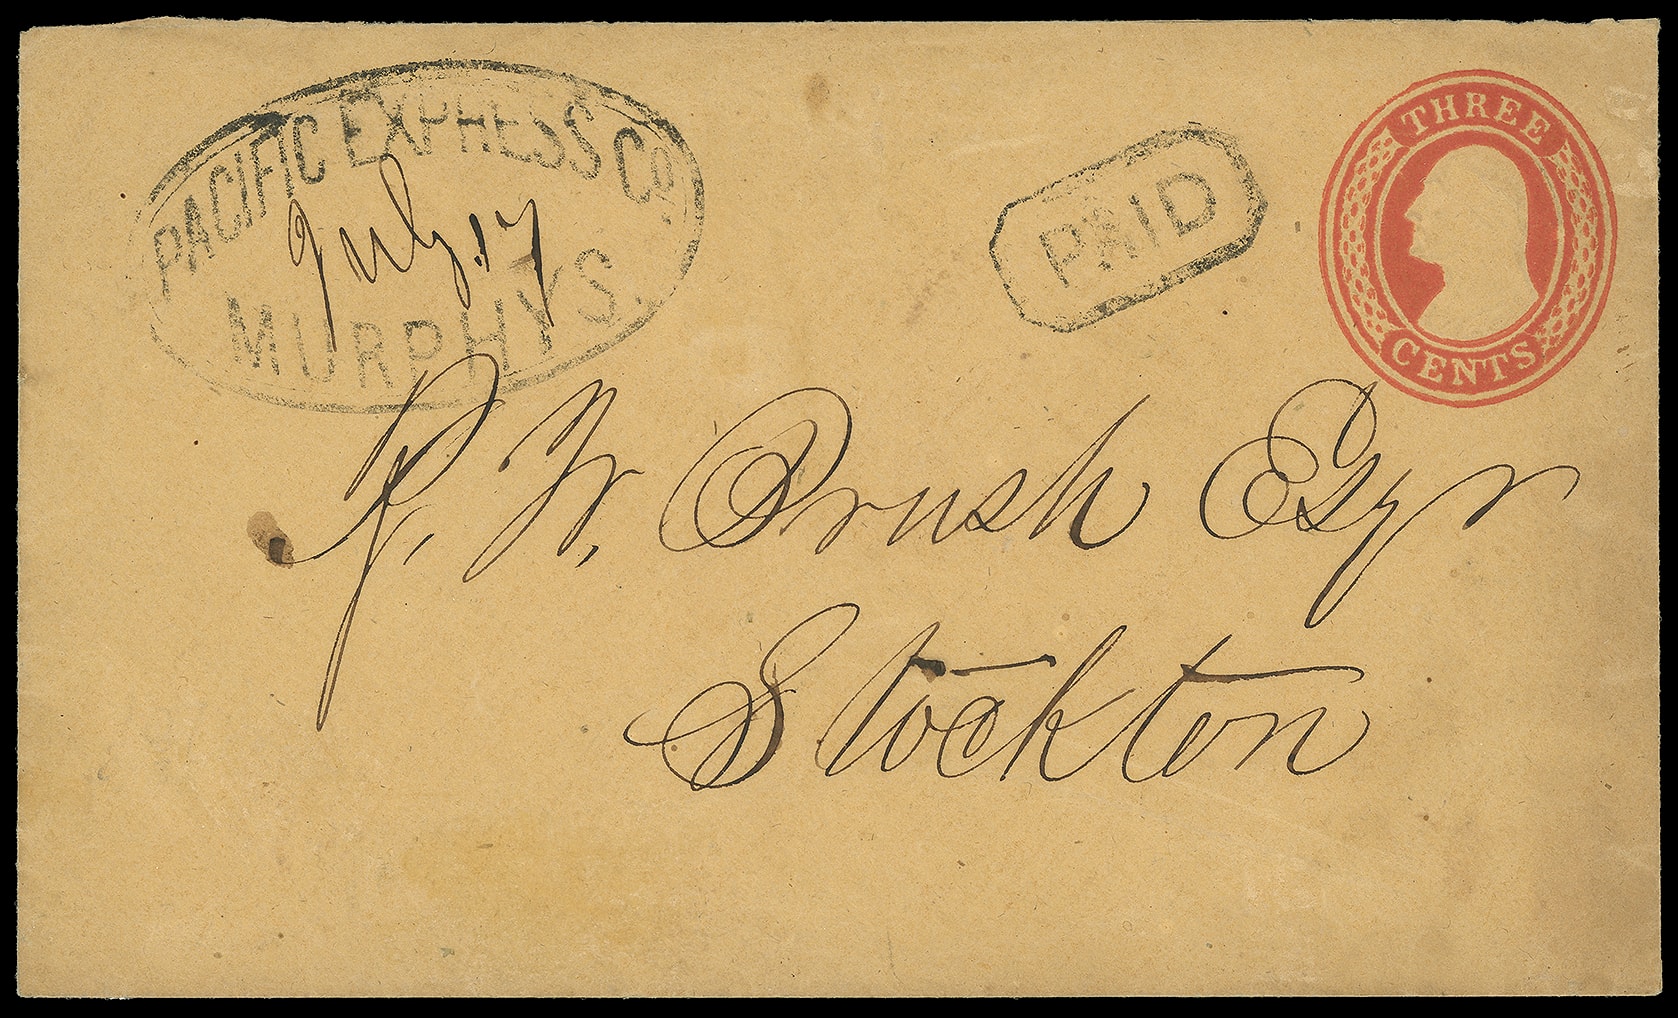 PACIFIC EXPRESS Co.
July 17
MURPHYS.
PAID
THREE
CENTS
J. W. Brush Esqr
Stockton